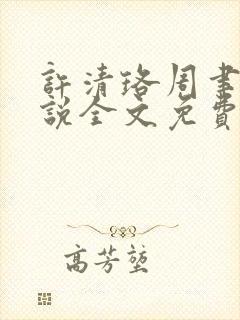 許清珞周聿
說全文免費
高芳堃